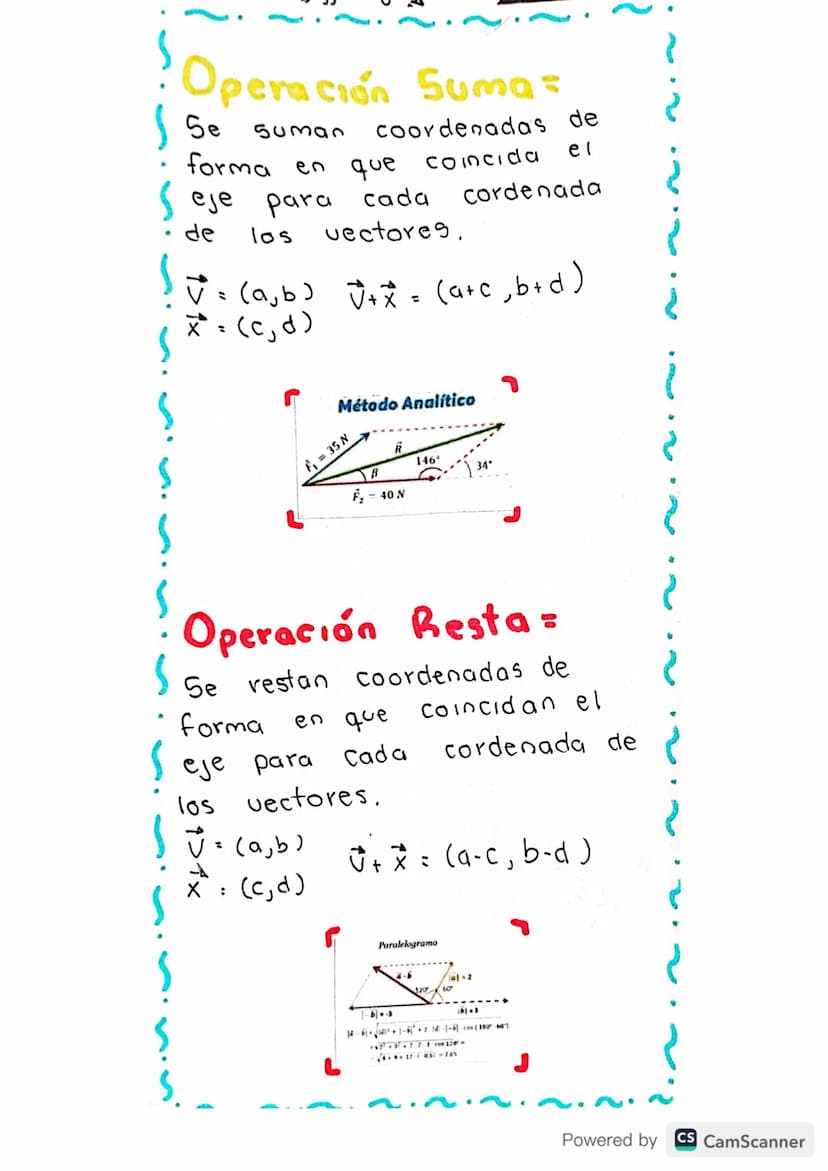 Operación Suma=
Se suman coordenadas de
forma en que coincida el
eje para cada cordenada
de los vectores.
V⃗ = (a,b) V⃗+X⃗ = (a+c, b+d)
X⃗ = (c,d)
Método Analítico
F⃗₁ = 35 N
R⃗
146°
34°
β
F⃗₂ = 40 N
Operación Resta=
Se restan coordenadas de
forma en que coincidan el
eje para cada cordenada de
los vectores.
V⃗ = (a,b) V⃗+X⃗ = (a-c, b-d)
X⃗ = (c,d)
Paralelogramo
120°
60°
Powered by CS CamScanner